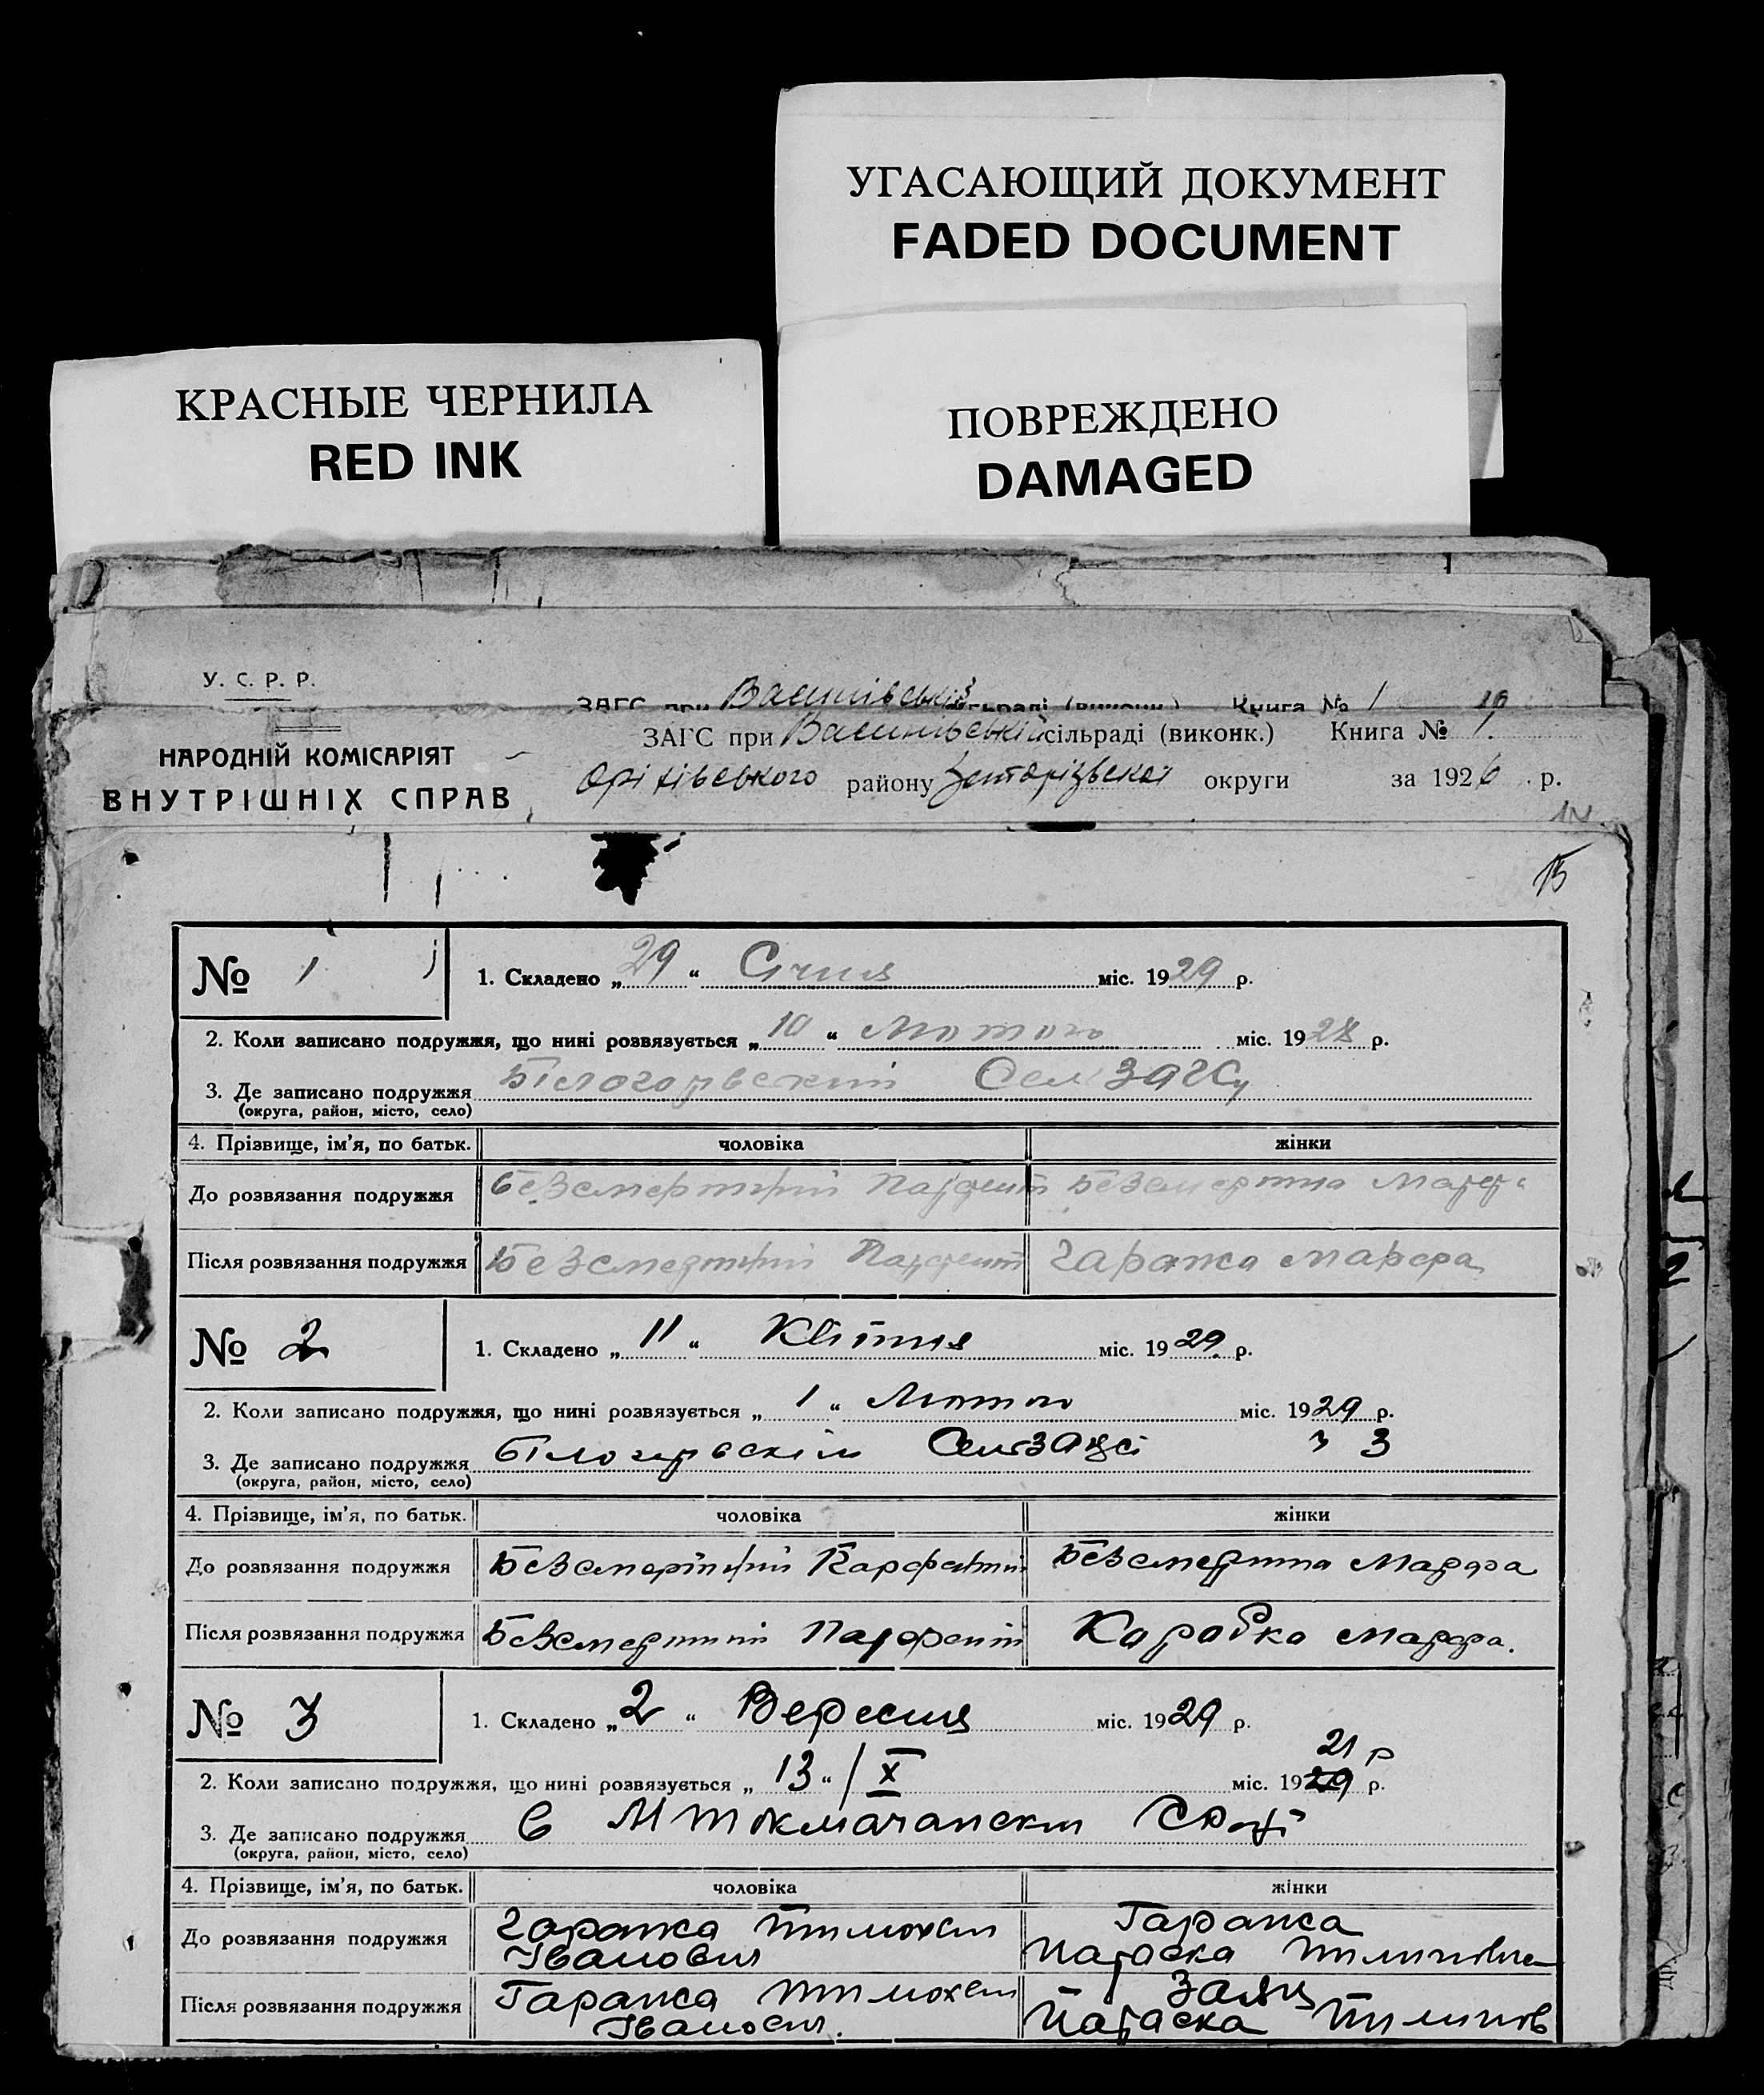 УГАСАЮЩИЙ ДОКУМЕНТ
FADED DOCUMENT
КРАСНЫЕ ЧЕРНИЛА
RED INK
ПОВРЕЖДЕНО
DAMAGED
У. С. Р. Р.
ЗАГС при Василівській сільраді (виконк.) Книга № 1
ЗАГС при Василівській сільраді (виконк.) Книга № 1.
НАРОДНІЙ КОМІСАРІЯТ
ВНУТРІШНІХ СПРАВ
Оріхівського району Запорізької округи за 1926 р.
15
№ 1
1. Складено „29“ Січня міс. 1929 р.
2. Коли записано подружжя, що нині розвязується „10“ Лютого міс. 1928 р.
3. Де записано подружжя
(округа, район, місто, село)
4. Прізвище, ім’я, по батьк. чоловіка жінки
До розвязання подружжя Безсмертний Парфент Безсмертна Марфа
Після розвязання подружжя Безсмертний Парфент Гаража Марфа
№ 2
1. Складено „11“ Квітня міс. 1929 р.
2. Коли записано подружжя, що нині розвязується „1“ Лютого міс. 1929 р.
3. Де записано подружжя
(округа, район, місто, село)
4. Прізвище, ім’я, по батьк. чоловіка жінки
До розвязання подружжя Безсмертний Парфентий Безсмертна Марфа
Після розвязання подружжя Безсмертний Парфентий Коробка Марфа.
№ 3
1. Складено „2“ Вересня міс. 1929 р.
21 р
2. Коли записано подружжя, що нині розвязується „13“ / X міс. 1929 р.
3. Де записано подружжя В М Токмачанскій
(округа, район, місто, село)
4. Прізвище, ім’я, по батьк. чоловіка жінки
До розвязання подружжя Гаража Тимохей Гаража
Іванович Параска
Після розвязання подружжя Гаража Тимохей Заяц
Іванович. Параска